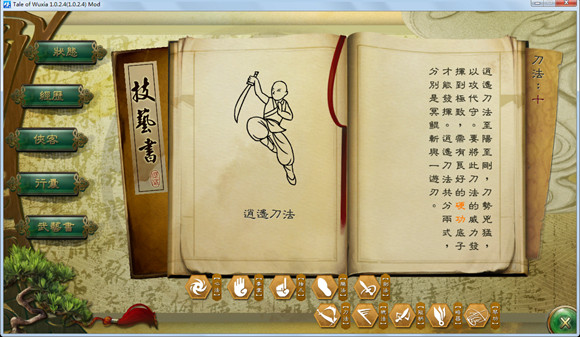 Tale of Wuxia 1.0.2.4(1.0.2.4) Mod
狀態
經歷
俠客
行囊
技藝書
逍遙刀法
刀法：十
逍遙刀法至陽至剛，刀勢兇猛，
以攻代守。要將此刀法的威力發
揮到極致，需有良好的硬功底子
才能發揮。逍遙刀法共分兩式，
分別是冥鯤斬與一遊刃。